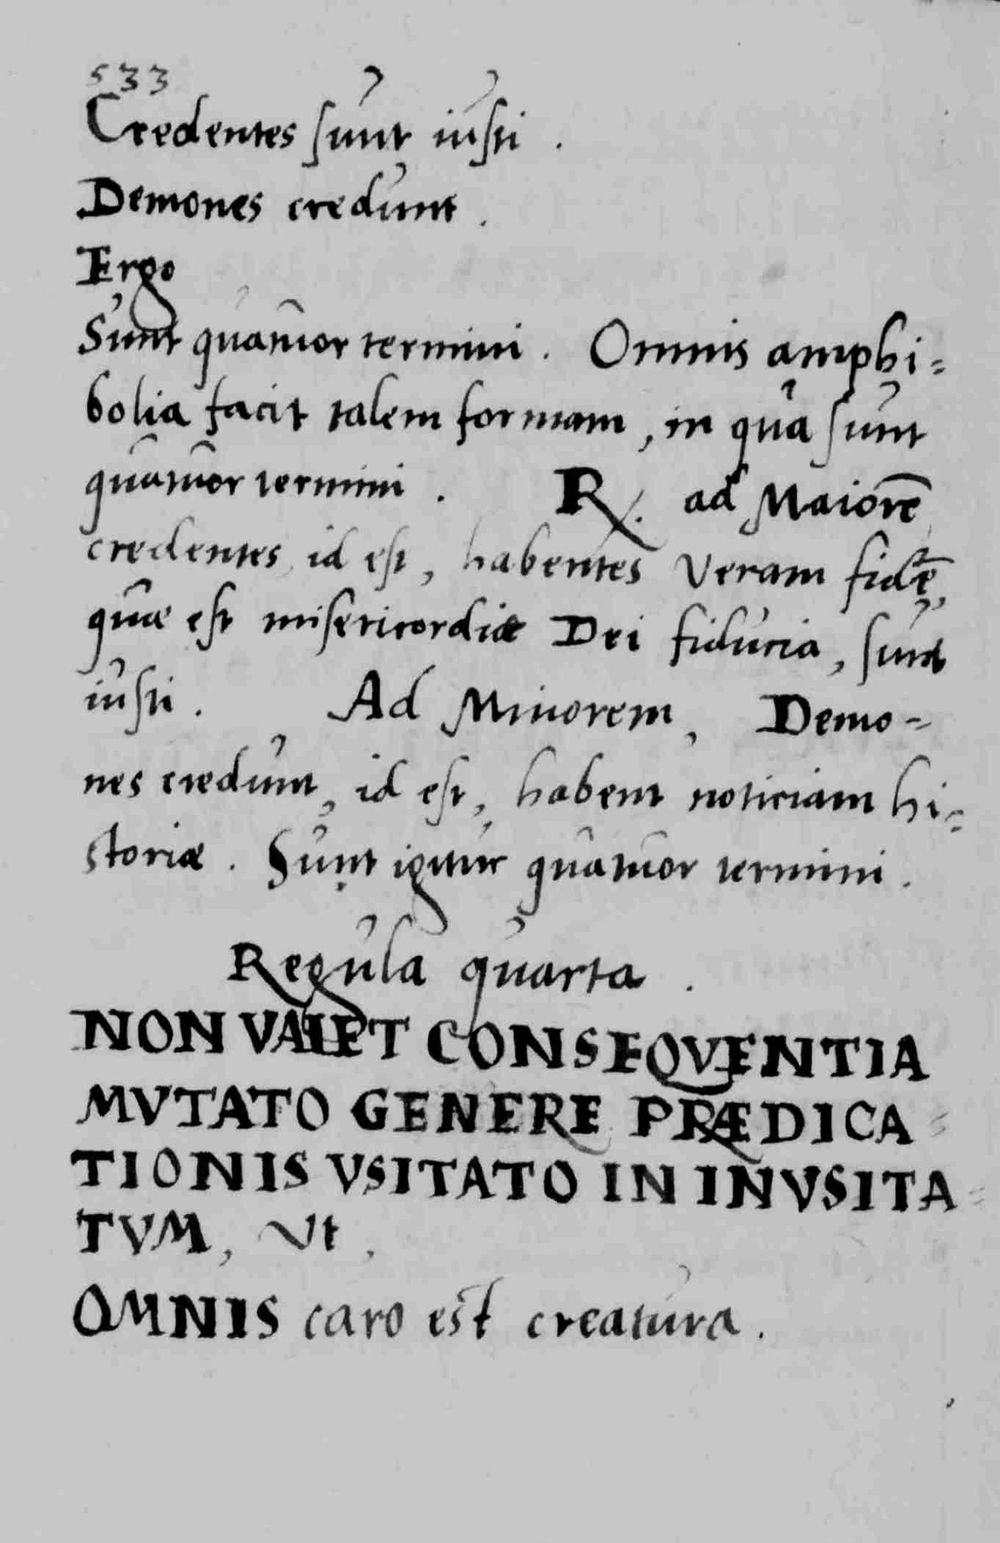 533
Credentes sunt iusti .
Demones credunt .
Ergo
Sunt quatuor termini . Omnis amphi=
bolia facit talem formam, in qua sunt
quatuor termini . R/. ad Maiorē
credentes, id est, habentes veram fidē,
quæ est misericordiæ Dei fiducia, sunt
iusti . Ad Minorem, Demo=
nes credunt, id est, habent noticiam hi=
storiæ . Sunt igitur quatuor termini .
Regula quarta .
NON VALET CONSEQVENTIA
MVTATO GENERE PRÆDICA=
TIONIS VSITATO IN INVSITA=
TVM, Vt,
OMNIS caro est creatura .